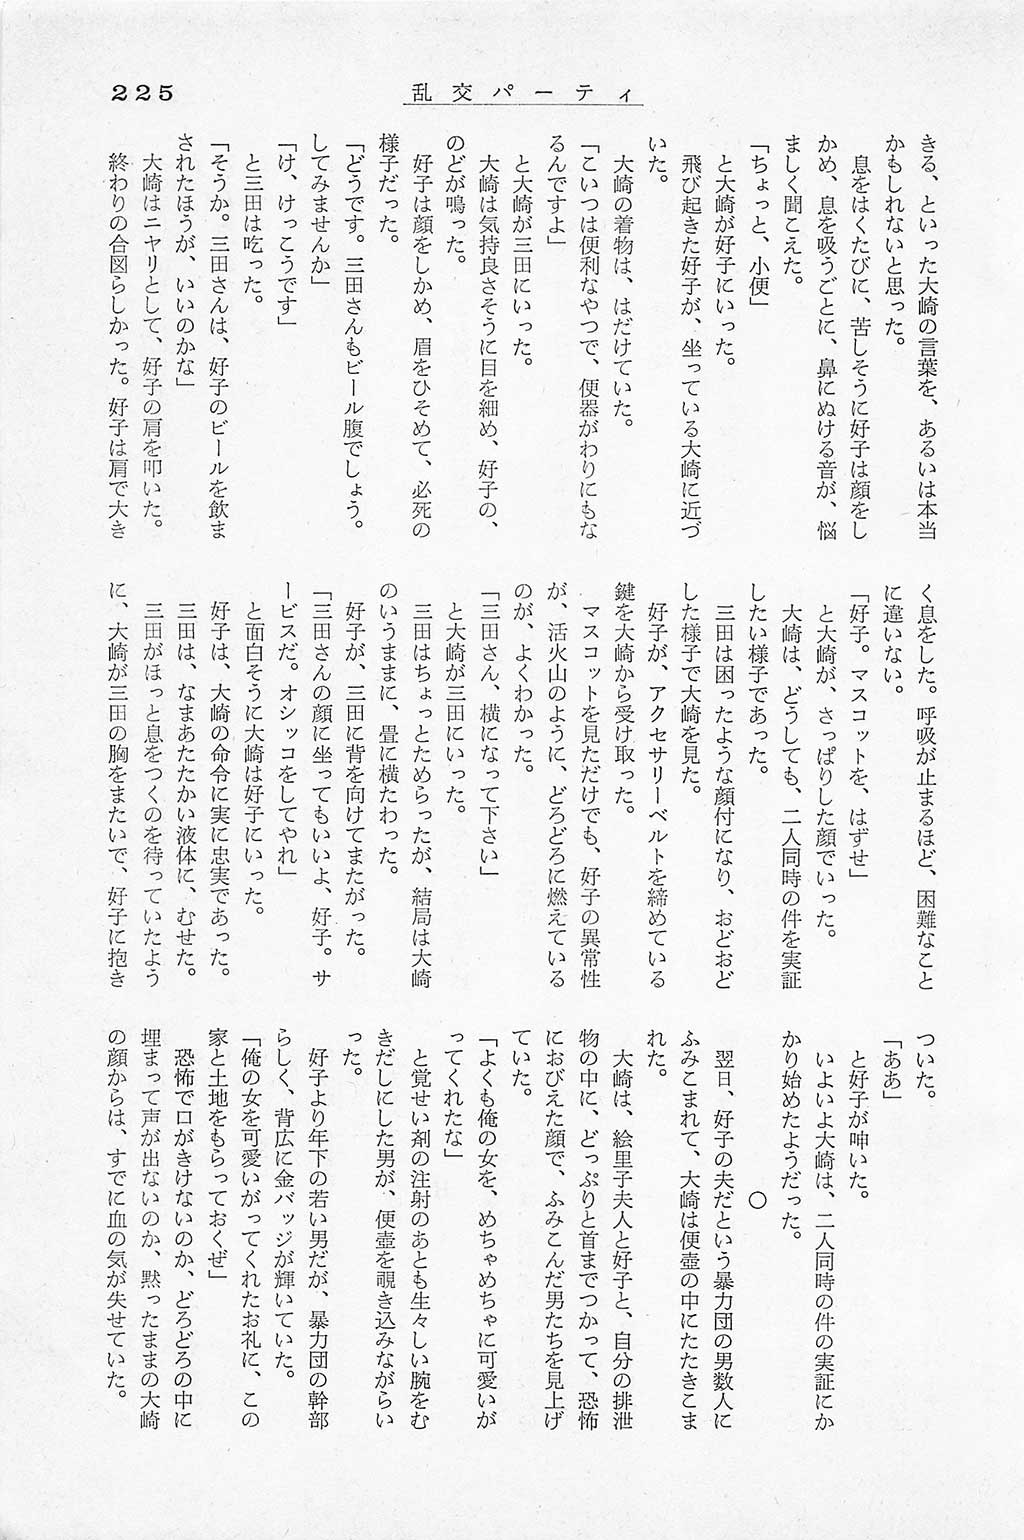 225
乱交パーティ
きる、といった大崎の言葉を、あるいは本当
かもしれないと思った。
息をはくたびに、苦しそうに好子は顔をし
かめ、息を吸うごとに、鼻にぬける音が、悩
ましく聞こえた。
「ちょっと、小便」
と大崎が好子にいった。
飛び起きた好子が、坐っている大崎に近づ
いた。
大崎の着物は、はだけていた。
「こいつは便利なやつで、便器がわりにもな
るんですよ」
と大崎が三田にいった。
大崎は気持良さそうに目を細め、好子の、
のどが鳴った。
好子は顔をしかめ、眉をひそめて、必死の
様子だった。
「どうです。三田さんもビール腹でしょう。
してみませんか」
「け、けっこうです」
と三田は吃った。
「そうか。三田さんは、好子のビールを飲ま
されたほうが、いいのかな」
大崎はニヤリとして、好子の肩を叩いた。
終わりの合図らしかった。好子は肩で大き
く息をした。呼吸が止まるほど、困難なこと
に違いない。
「好子。マスコットを、はずせ」
と大崎が、さっぱりした顔でいった。
大崎は、どうしても、二人同時の件を実証
したい様子であった。
三田は困ったような顔付になり、おどおど
した様子で大崎を見た。
好子が、アクセサリーベルトを締めている
鍵を大崎から受け取った。
マスコットを見ただけでも、好子の異常性
が、活火山のように、どろどろに燃えている
のが、よくわかった。
「三田さん、横になって下さい」
と大崎が三田にいった。
三田はちょっとためらったが、結局は大崎
のいうままに、畳に横たわった。
好子が、三田に背を向けてまたがった。
「三田さんの顔に坐ってもいいよ、好子。サ
ービスだ。オシッコをしてやれ」
と面白そうに大崎は好子にいった。
好子は、大崎の命令に実に忠実であった。
三田は、なまあたたかい液体に、むせた。
三田がほっと息をつくのを待っていたよう
に、大崎が三田の胸をまたいで、好子に抱き
ついた。
「ああ」
と好子が呻いた。
いよいよ大崎は、二人同時の件の実証にか
かり始めたようだった。
○
翌日、好子の夫だという暴力団の男数人に
ふみこまれて、大崎は便壺の中にたたきこま
れた。
大崎は、絵里子夫人と好子と、自分の排泄
物の中に、どっぷりと首までつかって、恐怖
におびえた顔で、ふみこんだ男たちを見上げ
ていた。
「よくも俺の女を、めちゃめちゃに可愛いが
ってくれたな」
と覚せい剤の注射のあとも生々しい腕をむ
きだしにした男が、便壺を覗き込みながらい
った。
好子より年下の若い男だが、暴力団の幹部
らしく、背広に金バッジが輝いていた。
「俺の女を可愛いがってくれたお礼に、この
家と土地をもらっておくぜ」
恐怖で口がきけないのか、どろどろの中に
埋まって声が出ないのか、黙ったままの大崎
の顔からは、すでに血の気が失せていた。